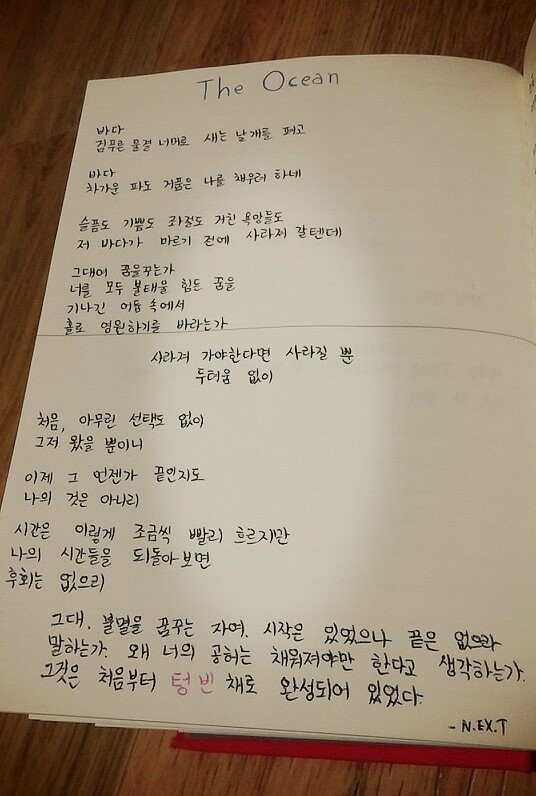 The Ocean
바다
검푸른 물결 너머로 새는 날개를 펴고
바다
차가운 파도 거품은 나를 채우려 하네
슬픔도 기쁨도 좌절도 거친 욕망들도
저 바다가 마르기 전에 사라져 갈텐데
그대여 꿈을꾸는가
너를 모두 불태울 힘든 꿈을
기나긴 어둠 속에서
홀로 영원하기를 바라는가
사라져 가야한다면 사라질 뿐
두터움 없이
처음, 아무런 선택도 없이
그저 왔을 뿐이니
이제 그 언젠가 끝인지도
나의 것은 아니리
시간은 이렇게 조금씩 빨리 흐르지만
나의 시간들을 되돌아보면
후회는 없으리
그대, 불멸을 꿈꾸는 자여. 시작은 있었으나 끝은 없으라
말하는가. 왜 너의 공허는 채워져야만 한다고 생각하는가.
그것은 처음부터 텅 빈 채로 완성되어 있었다.
- N.EX.T